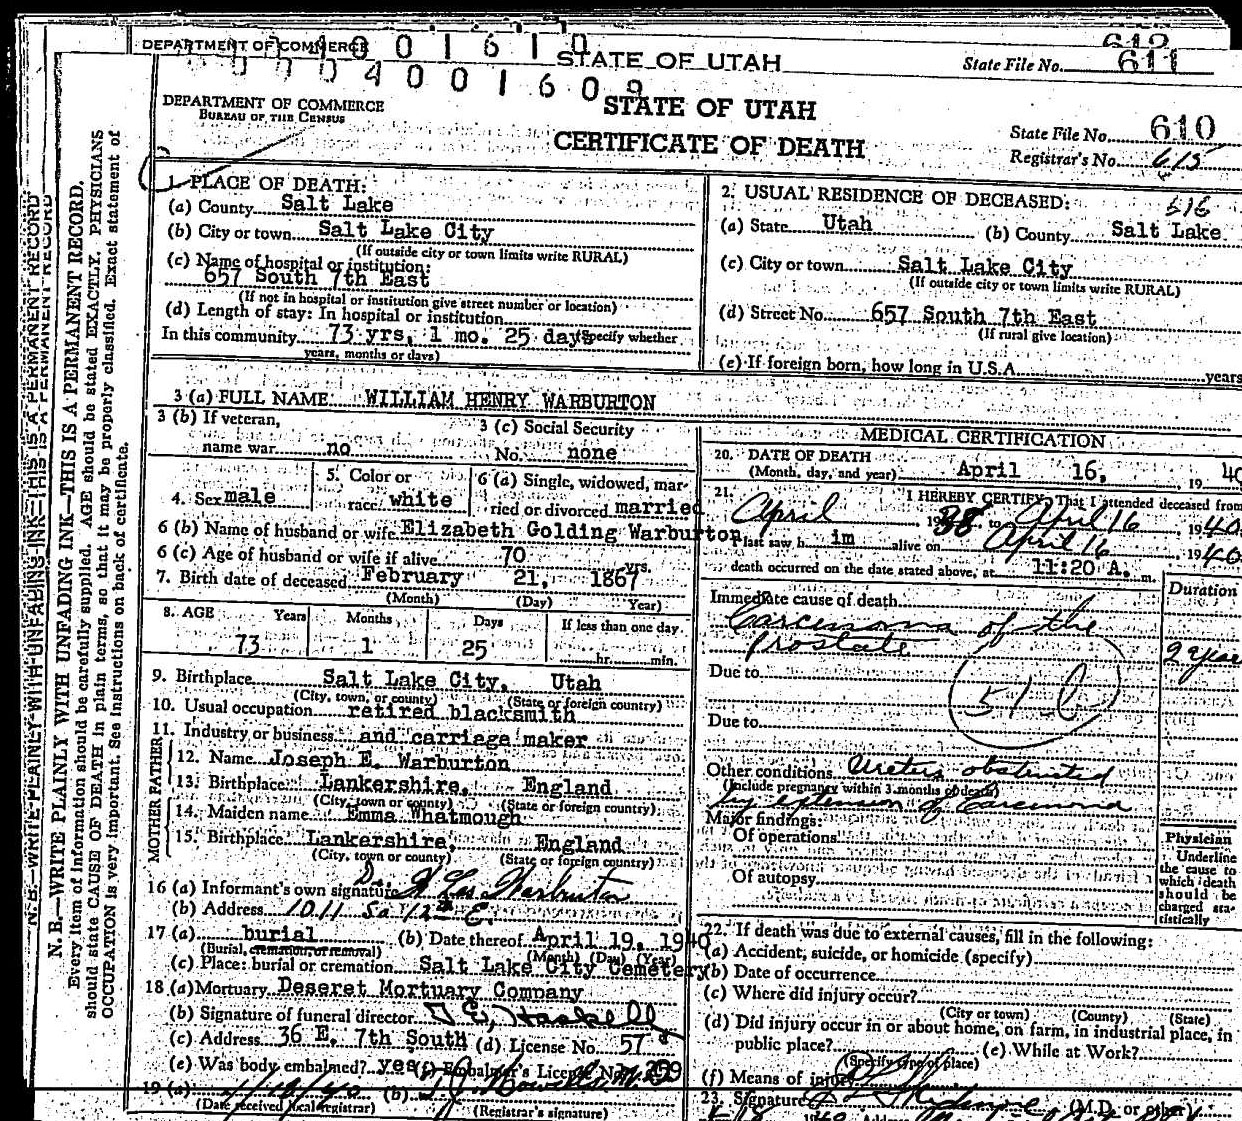 612
DEPARTMENT OF COMMERCE
STATE OF UTAH
State File No. 611
DEPARTMENT OF COMMERCE
BUREAU OF THE CENSUS
STATE OF UTAH
CERTIFICATE OF DEATH
State File No. 610
Registrar's No. 615
N. B.—WRITE PLAINLY WITH UNFADING INK—THIS IS A PERMANENT RECORD
N. B.—WRITE PLAINLY WITH UNFADING INK—THIS IS A PERMANENT RECORD.
Every item of information should be carefully supplied. AGE should be stated EXACTLY. PHYSICIANS
should state CAUSE OF DEATH in plain terms, so that it may be properly classified. Exact statement of
OCCUPATION is very important. See instructions on back of certificate.
1. PLACE OF DEATH:
(a) County Salt Lake
(b) City or town Salt Lake City
(If outside city or town limits write RURAL)
(c) Name of hospital or institution:
657 South 7th East
(If not in hospital or institution give street number or location)
(d) Length of stay: In hospital or institution
In this community 73 yrs, 1 mo. 25 days (Specify whether
years, months or days)
2. USUAL RESIDENCE OF DECEASED:
516
(a) State Utah (b) County Salt Lake
(c) City or town Salt Lake City
(If outside city or town limits write RURAL)
(d) Street No. 657 South 7th East
(If rural give location)
(e) If foreign born, how long in U.S.A. years
3 (a) FULL NAME WILLIAM HENRY WARBURTON
3 (b) If veteran,
name war no
3 (c) Social Security
No. none
4. Sex male
5. Color or
race white
6 (a) Single, widowed, mar-
ried or divorced married
6 (b) Name of husband or wife Elizabeth Golding Warburton
6 (c) Age of husband or wife if alive 70 yrs.
7. Birth date of deceased February 21, 1867
(Month) (Day) Year)
8. AGE Years Months Days If less than one day
73 1 25 hr. min.
9. Birthplace Salt Lake City, Utah
(City, town, or county) (State or foreign country)
10. Usual occupation retired blacksmith
11. Industry or business and carriage maker
FATHER
12. Name Joseph E. Warburton
13. Birthplace Lankershire, England
(City, town or county) (State or foreign country)
MOTHER
14. Maiden name Emma Whatmough
15. Birthplace Lankershire, England
(City, town or county) (State or foreign country)
16 (a) Informant's own signature Warburton
(b) Address 1011 So 12th E.
17 (a) burial (b) Date thereof April 19, 1940
(Burial, cremation, or removal) (Month) (Day) (Year)
(c) Place: burial or cremation Salt Lake City Cemetery
18 (a) Mortuary Deseret Mortuary Company
(b) Signature of funeral director
(c) Address 36 E. 7th South (d) License No. 57
(e) Was body embalmed? yes (f) Embalmer's License No. 259
19 (a) (b)
(Date received local registrar) (Registrar's signature)
MEDICAL CERTIFICATION
20. DATE OF DEATH
(Month, day, and year) April 16, 19 40
21. I HEREBY CERTIFY, That I attended deceased from
April 1938 to April 16, 1940.
last saw him alive on April 16, 1940
death occurred on the date stated above, at 11:20 A. m.
Duration
Immediate cause of death
Carcinoma of the
prostate 2 year
Due to
51 b
Due to
Other conditions Ureters obstructed
(Include pregnancy within 3 months of death)
by extension of Carcinoma
Major findings:
Of operations
Of autopsy
Physician
Underline
the cause to
which death
should be
charged sta-
tistically
22. If death was due to external causes, fill in the following:
(a) Accident, suicide, or homicide (specify)
(b) Date of occurrence
(c) Where did injury occur?
(City or town) (County) (State)
(d) Did injury occur in or about home, on farm, in industrial place, in
public place? (e) While at Work?
(Specify type of place)
(f) Means of injury
23. Signature (M.D. or other)